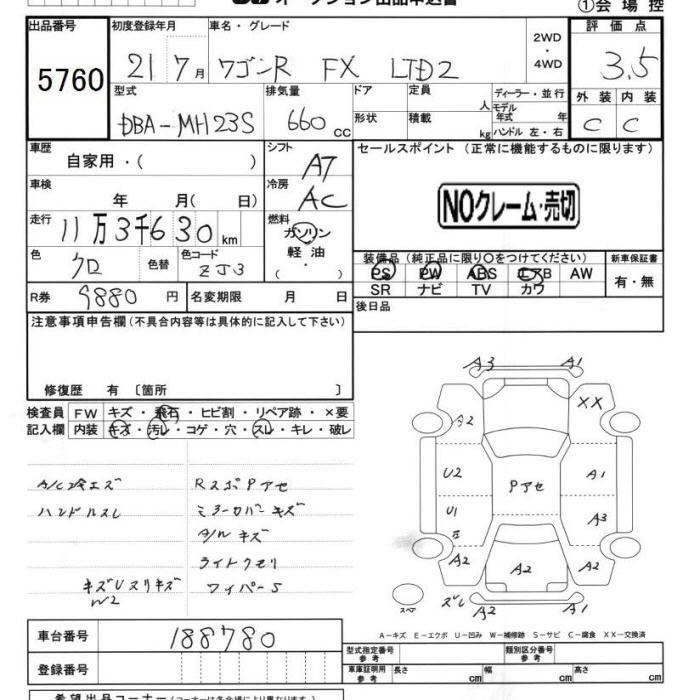 オークション出品申込書
①会場控
出品番号 初度登録年月 車名・グレード 評価点
5760 21 7月 ワゴンR FX LTD2 2WD・4WD 3.5
型式 排気量 ドア 定員 人 ディーラー・並行 外装 内装
DBA-MH23S 660cc 形状 積載 kg モデル年式 年 ハンドル 左・右 C C
車歴 シフト セールスポイント(正常に機能するものに限ります)
自家用・( ) AT
車検 冷房
年 月( 日) AC NOクレーム・売切
走行 燃料
11万3千630km ガソリン
軽油・( )
色 色替 色コード 装備品(純正品に限り○をつけてください) 新車保証書
クロ ZJ3 PS PW ABS エアB AW 有・無
SR ナビ TV カワ
R券 9880円 名変期限 月 日 後日品
注意事項申告欄(不具合内容等は具体的に記入して下さい)
修復歴 有 〔箇所 〕
検査員 FW キズ・飛石・ヒビ割・リペア跡・×要
記入欄 内装 キズ・汚レ・コゲ・穴・スレ・キレ・破レ
A3 A1
A2 XX
A/C吹エズ RスポPアセ
ハンドルスレ ミラーカバーキズ
A/Wキズ
ライトクモリ
キズUスリキズ ワイパーS
W2
U2 Pアセ A1
U1 A3
A2 A2 A2
スペア ズレ A2 A1
A-キズ E-エクボ U-凹み W-補修跡 S-サビ C-腐食 XX-交換済
車台番号 188780
登録番号
型式指定番号 参考 類別区分番号 参考
車庫証明用 参考 長さ cm 幅 cm 高さ cm
希望出品コーナー(コーナーは各会場により異なります)